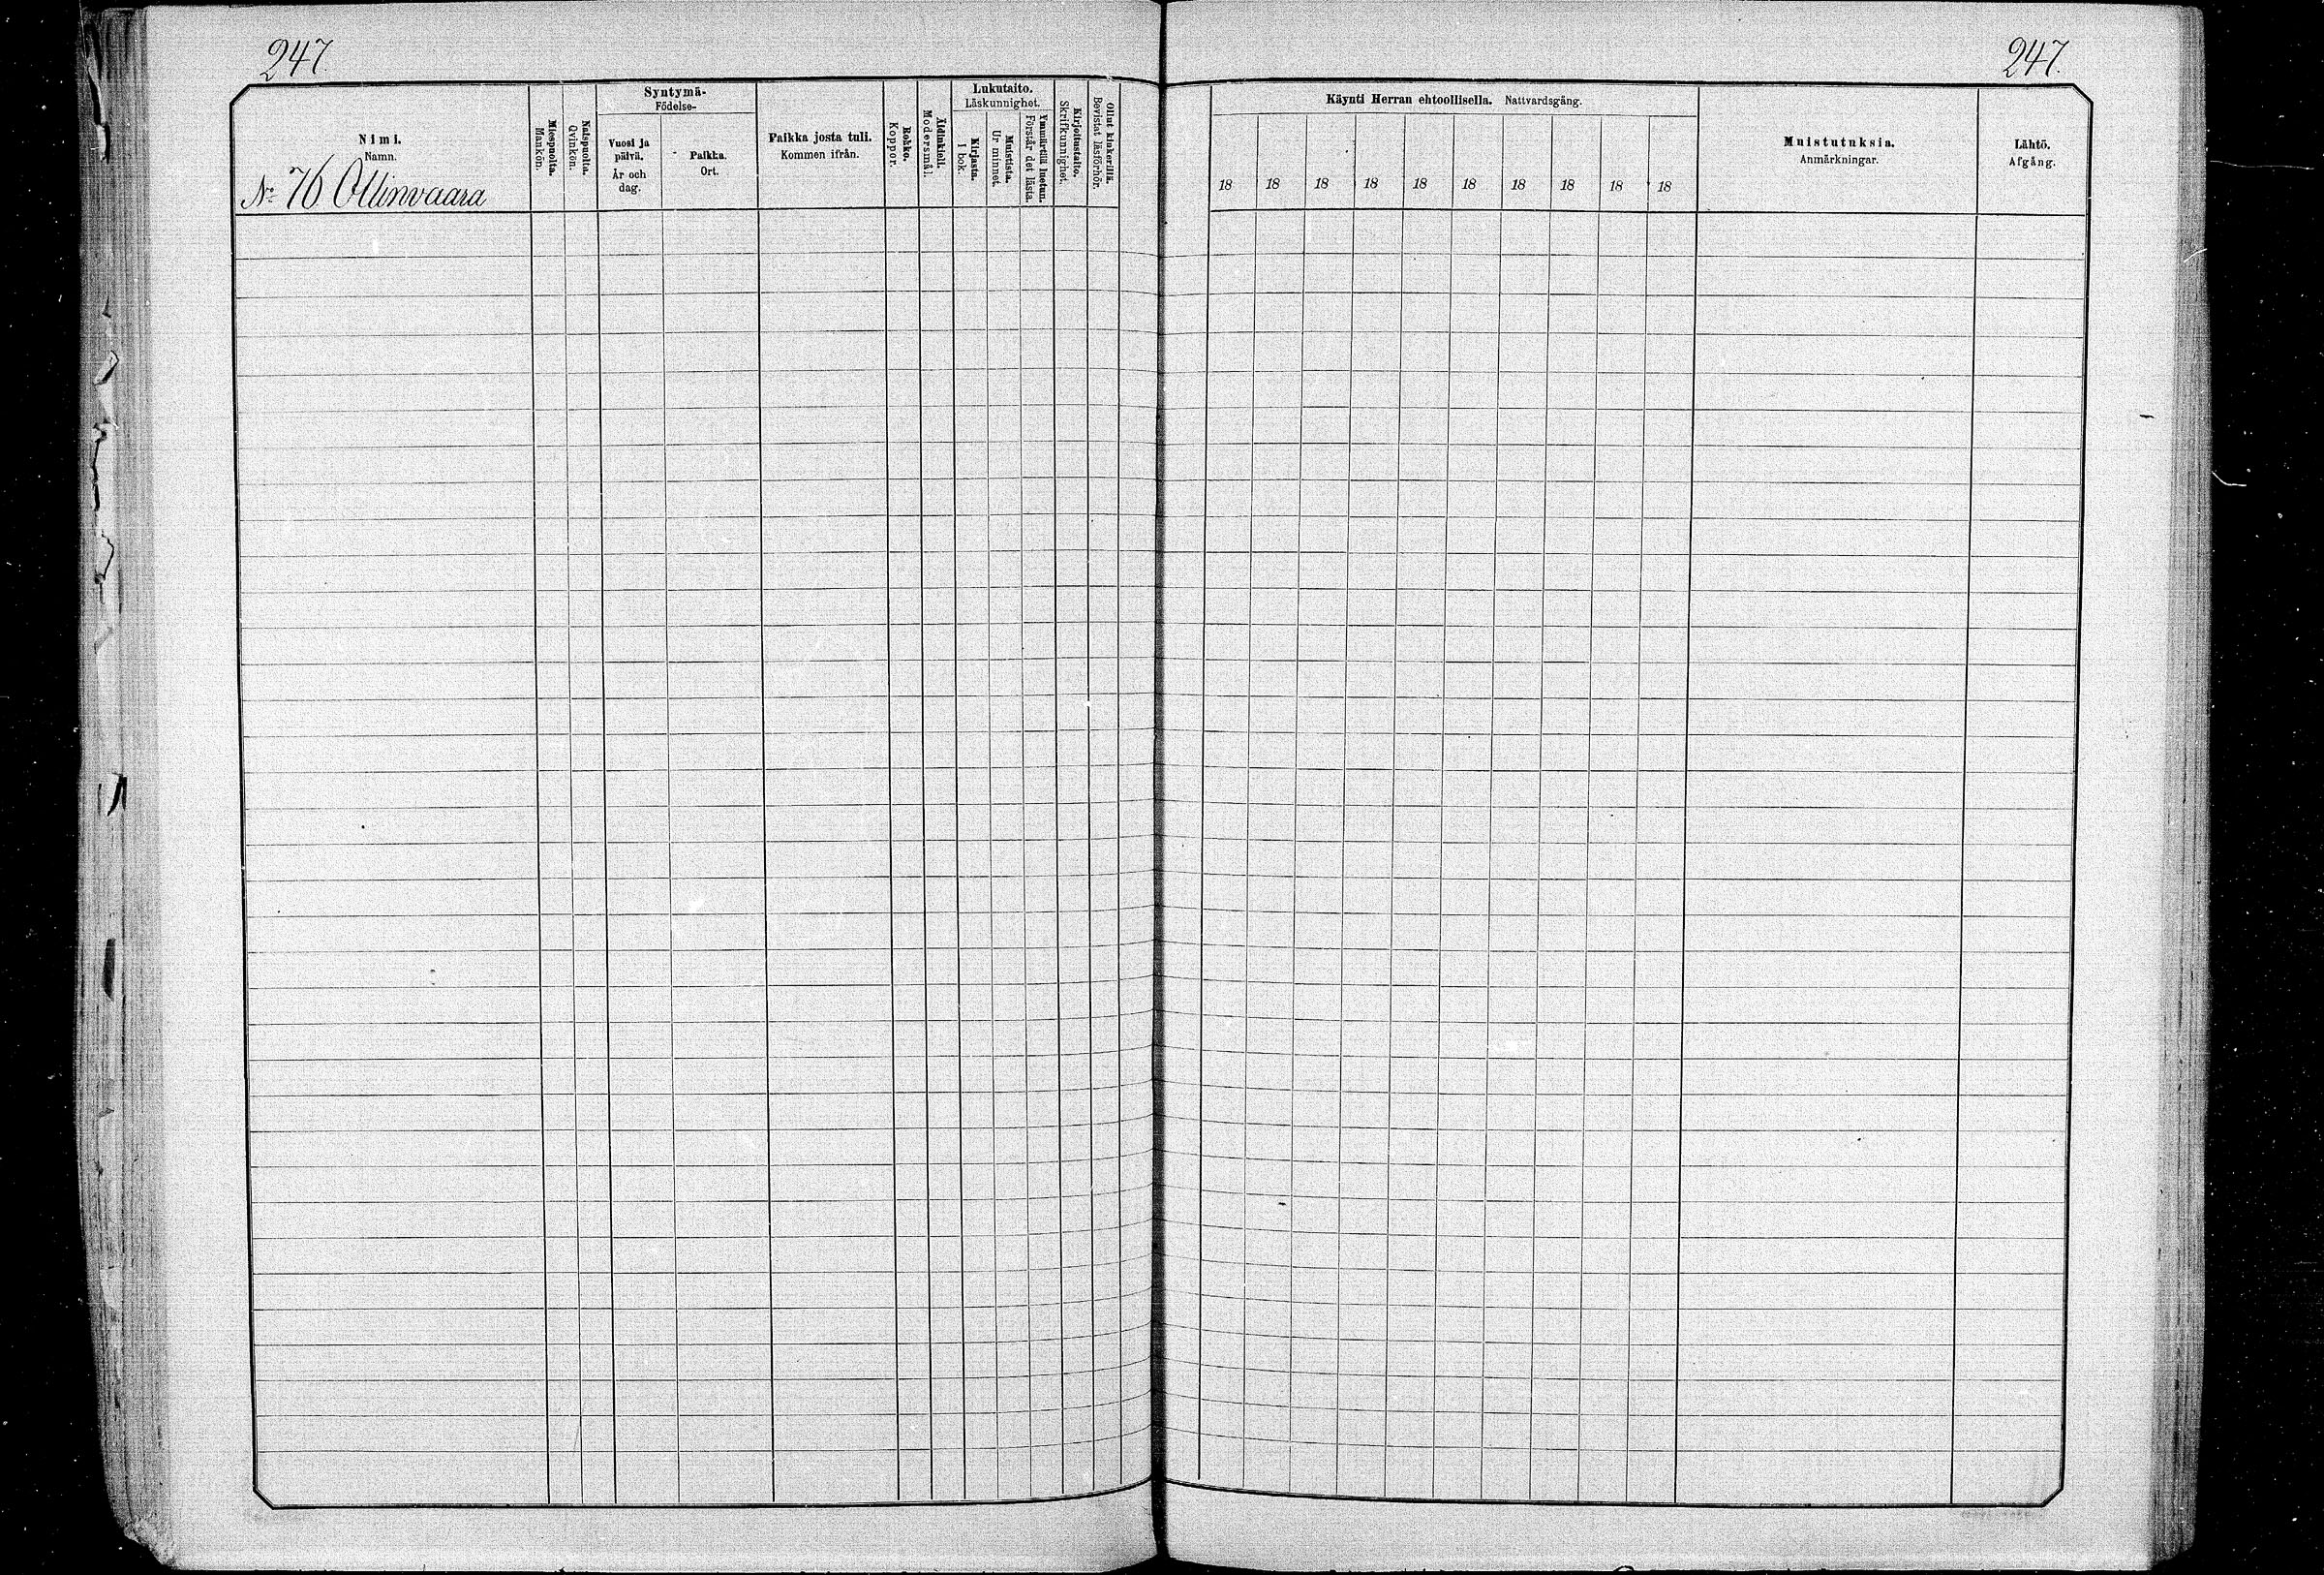 247.
247.
Nimi.
Namn.
No 76 Ollinvaara
Miespuolta.
Mankön.
Naispuolta.
Qvinkön.
Syntymä-
Födelse-
Vuosi ja
päivä.
År och
dag.
Paikka.
Ort.
Paikka josta tuli.
Kommen ifrån.
Rokko.
Koppor.
Äidinkieli.
Modersmål.
Lukutaito.
Läskunnighet.
Kirjasta.
I bok.
Muistista.
Ur minnet.
Ymmärtää luetun.
Förstår det lästa.
Kirjoitustaito.
Skrifkunnighet.
Ollut kinkerillä.
Bevistat läsförhör.
Käynti Herran ehtoollisella. Nattvardsgång.
18 18 18 18 18 18 18 18 18 18
Muistutuksia.
Anmärkningar.
Lähtö.
Afgång.